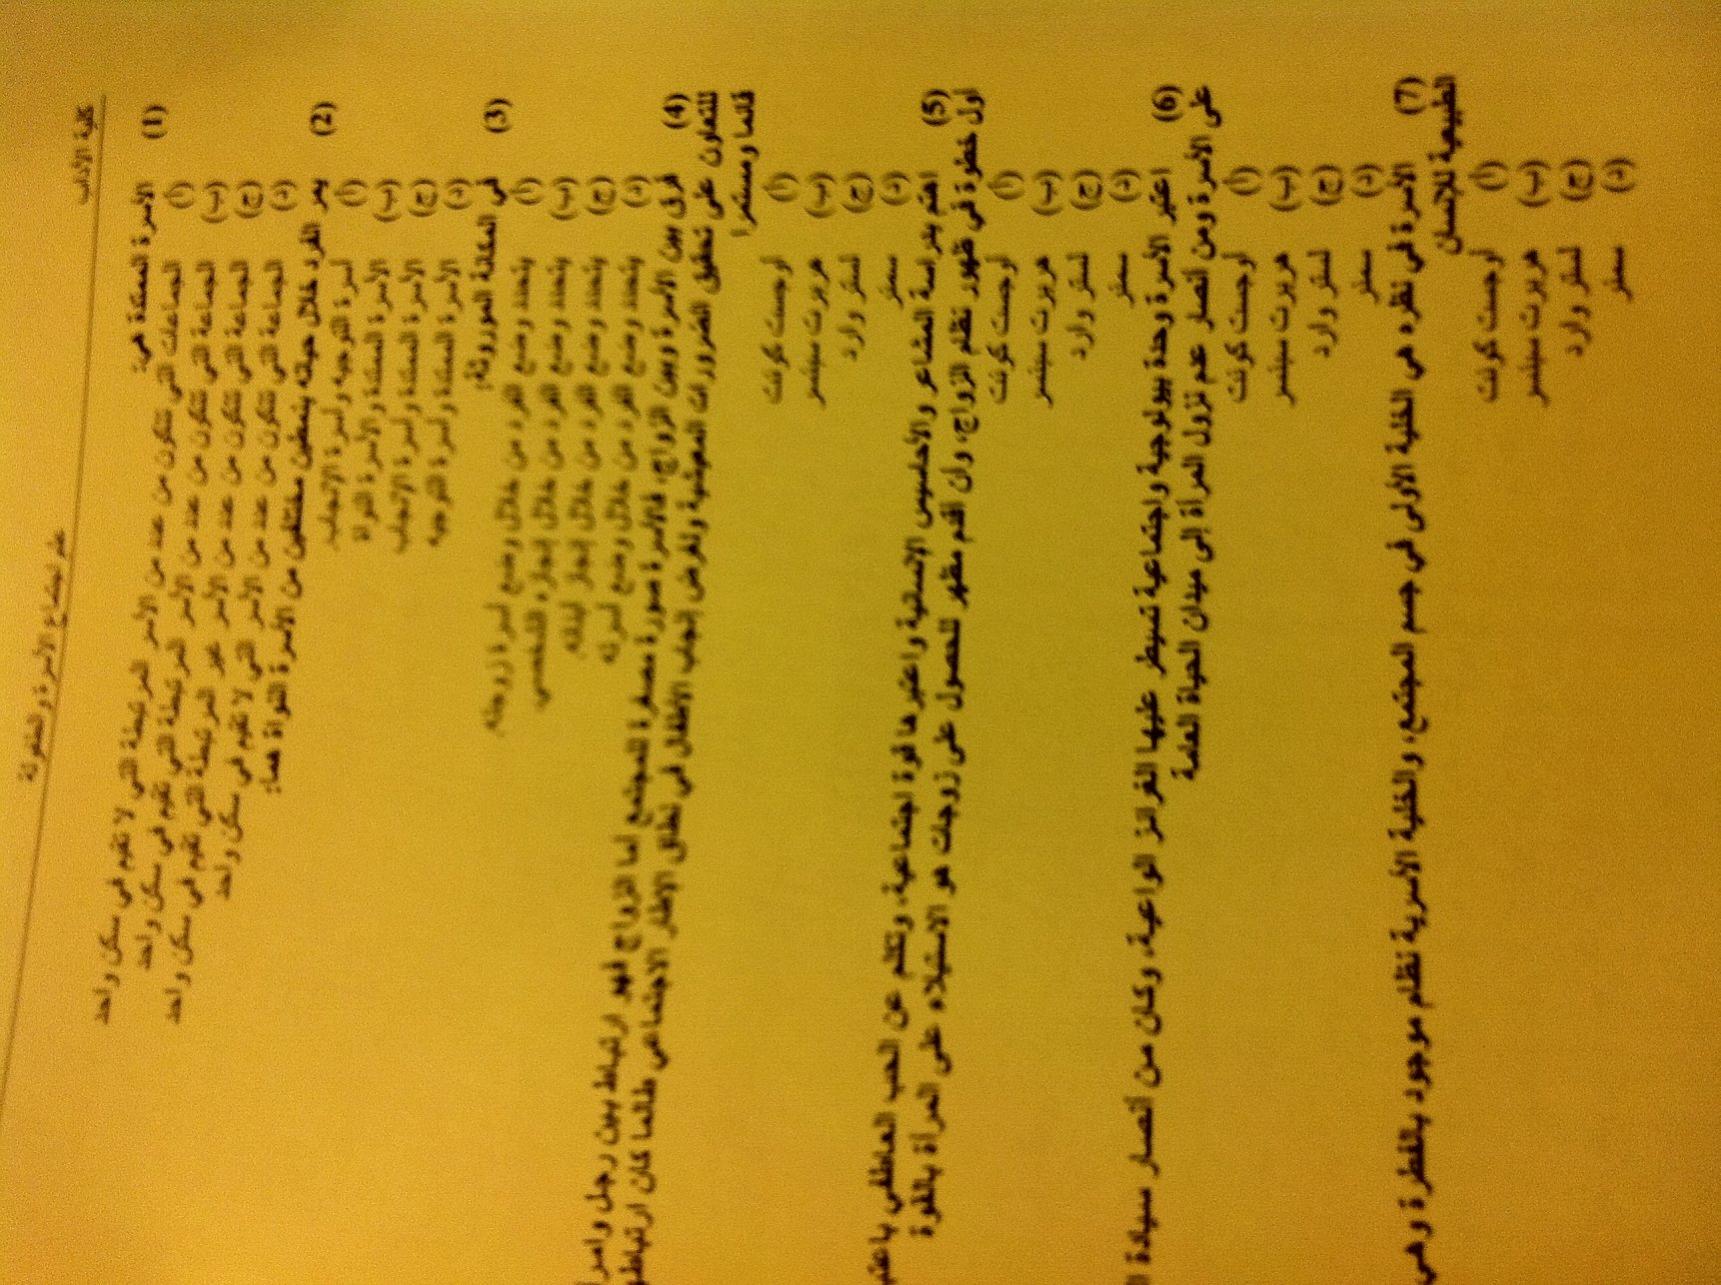 كلية الآداب
علم اجتماع الأسرة والطفولة
(1) الأسرة الممتدة هي:
(أ) الجماعات التي تتكون من عدد من الأسر المرتبطة التي لا تقيم في سكن واحد
(ب) الجماعة التي تتكون من عدد من الأسر المرتبطة التي تقيم في سكن واحد
(ج) الجماعة التي تتكون من عدد من الأسر غير المرتبطة التي تقيم في سكن واحد
(د) الجماعة التي تتكون من عدد من الأسر التي لا تقيم في سكن واحد
(2) يمر الفرد خلال حياته بنمطين مختلفين من الأسرة النواة هما:
(أ) أسرة التوجيه وأسرة الإنجاب
(ب) الأسرة الممتدة والأسرة النواة
(ج) الأسرة الممتدة وأسرة الإنجاب
(د) الأسرة الممتدة وأسرة التوجيه
(3) في المكانة الموروثة:
(أ) يتحدد وضع الفرد من خلال وضع أسرة زوجته
(ب) يتحدد وضع الفرد من خلال إنجازه الشخصي
(ج) يتحدد وضع الفرد من خلال إنجاز أبنائه
(د) يتحدد وضع الفرد من خلال وضع أسرته
(4) فرق بين الأسرة وبين الزواج، فالأسرة صورة مصغرة للمجتمع أما الزواج فهو ارتباط بين رجل وامرأ
للتعاون على تحقيق الضرورات المعيشية ولغرض إنجاب الأطفال في نطاق الإطار الاجتماعي طالما كان ارتباطه
قائما ومستمرا
(أ) أوجست كونت
(ب) هربرت سبنسر
(ج) لستر وارد
(د) سمنر
(5) اهتم بدراسة المشاعر والأحاسيس الإنسانية واعتبرها قوة اجتماعية، وتكلم عن الحب العاطفي باعتب
أول خطوة في ظهور نظام الزواج، وأن أقدم مظهر للحصول على زوجات هو الاستيلاء على المرأة بالقوة
(أ) أوجست كونت
(ب) هربرت سبنسر
(ج) لستر وارد
(د) سمنر
(6) اعتبر الأسرة وحدة بيولوجية واجتماعية تسيطر عليها الغرائز الواعية، وكان من أنصار سيادة ا
على الأسرة ومن أنصار عدم نزول المرأة إلى ميدان الحياة العامة
(أ) أوجست كونت
(ب) هربرت سبنسر
(ج) لستر وارد
(د) سمنر
(7) الأسرة في نظره هي الخلية الأولى في جسم المجتمع، والخلية الأسرية نظام موجود بالفطرة وهي
الطبيعية للإنسان
(أ) أوجست كونت
(ب) هربرت سبنسر
(ج) لستر وارد
(د) سمنر